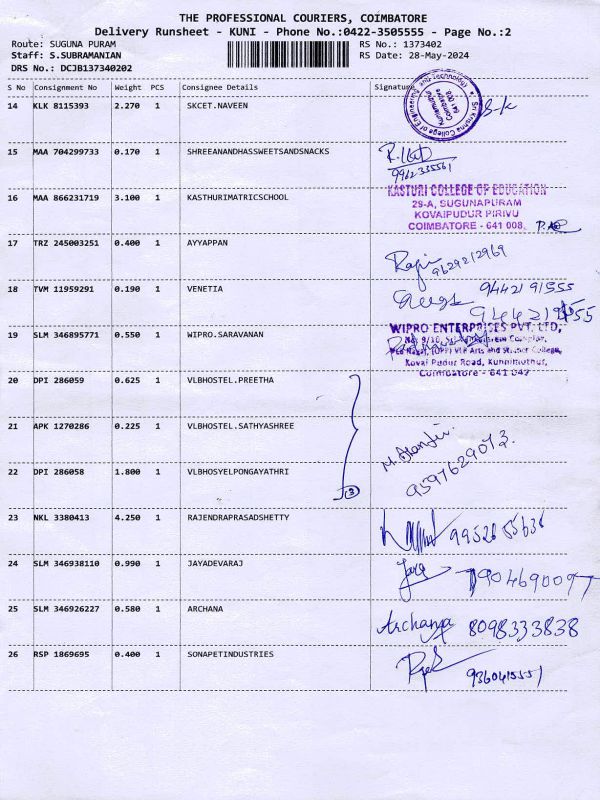 THE PROFESSIONAL COURIERS, COIMBATORE
Delivery Runsheet - KUNI - Phone No.:0422-3505555 - Page No.:2
Route: SUGUNA PURAM
Staff: S.SUBRAMANIAN
DRS No.: DCJB137340202
RS No.: 1373402
RS Date: 28-May-2024
S No Consignment No Weight PCS Consignee Details Signature
14 KLK 8115393 2.270 1 SKCET.NAVEEN
Sri Krishna College of Engineering and Technology
Kuniamuthur
Coimbatore
641 008
15 MAA 704299733 0.170 1 SHREEANANDHASSWEETSANDSNACKS
16 MAA 866231719 3.100 1 KASTHURIMATRICSCHOOL
KASTURI COLLEGE OF EDUCATION
29-A, SUGUNAPURAM
KOVAIPUDUR PIRIVU
COIMBATORE - 641 008.
17 TRZ 245003251 0.400 1 AYYAPPAN
9629212969
18 TVM 11959291 0.190 1 VENETIA
9442191555
19 SLM 346895771 0.550 1 WIPRO.SARAVANAN
WIPRO ENTERPRISES PVT. LTD,
Kovai Pudur Road, Kuniamuthur,
Coimbatore - 641 042
20 DPI 286059 0.625 1 VLBHOSTEL.PREETHA
21 APK 1270286 0.225 1 VLBHOSTEL.SATHYASHREE
22 DPI 286058 1.800 1 VLBHOSYELPONGAYATHRI
3
9597629073.
23 NKL 3380413 4.250 1 RAJENDRAPRASADSHETTY
24 SLM 346938110 0.990 1 JAYADEVARAJ
7904690097
25 SLM 346926227 0.580 1 ARCHANA
Archana 8098333838
26 RSP 1869695 0.400 1 SONAPETINDUSTRIES
9360415551